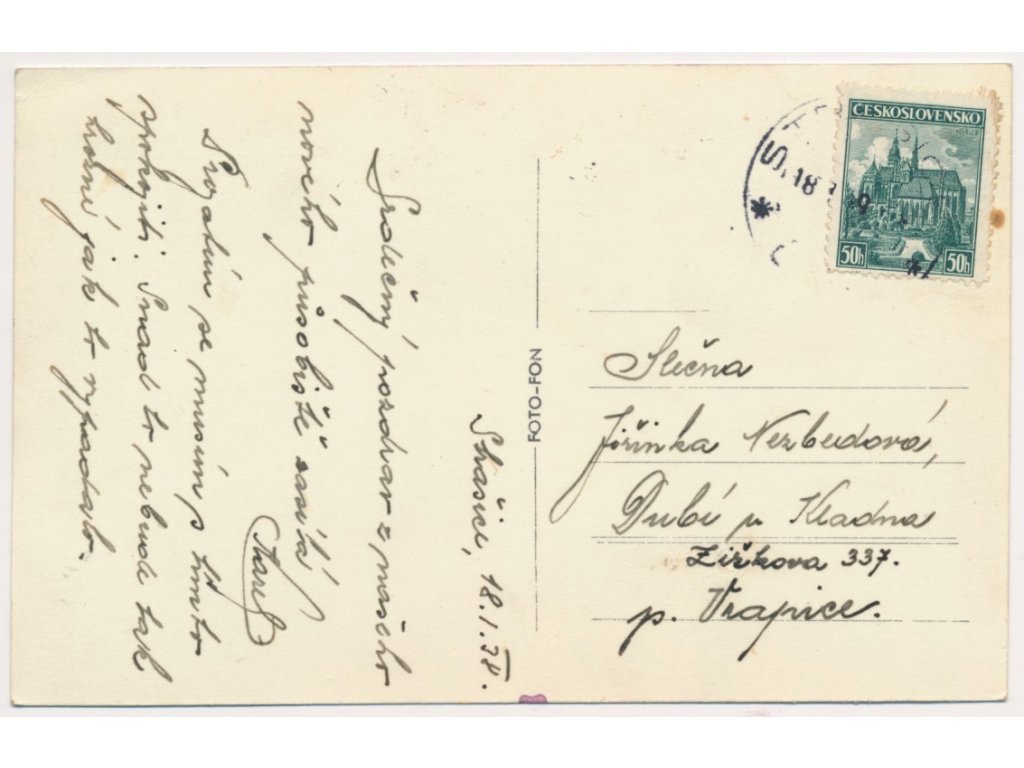 Strašice, 18.1.38.
Srdečný pozdrav z našeho
nového působiště zasílá
Karel
Prozatím se musím s tímto
spokojiti. Snad to nebude tak
hrozné jak to vypadalo.
FOTO-FON
ČESKOSLOVENSKO
KOŠICE
50h 50h
Slečna
Jiřinka Nezbudová,
Dubí u Kladna
Žižkova 337.
p. Vrapice.